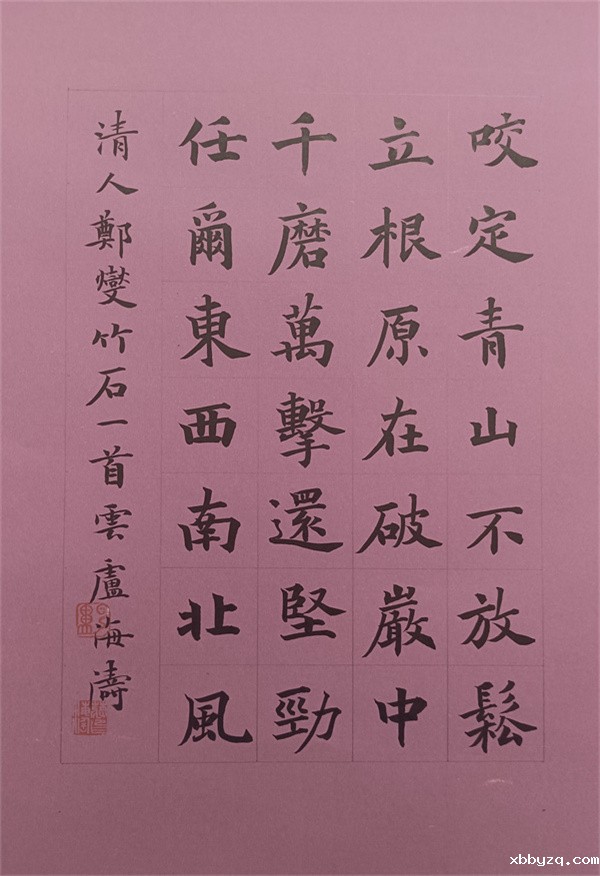 咬定青山不放鬆
立根原在破巖中
千磨萬擊還堅勁
任爾東西南北風
清人鄭燮竹石一首雲廬海濤
xbbyzq.com